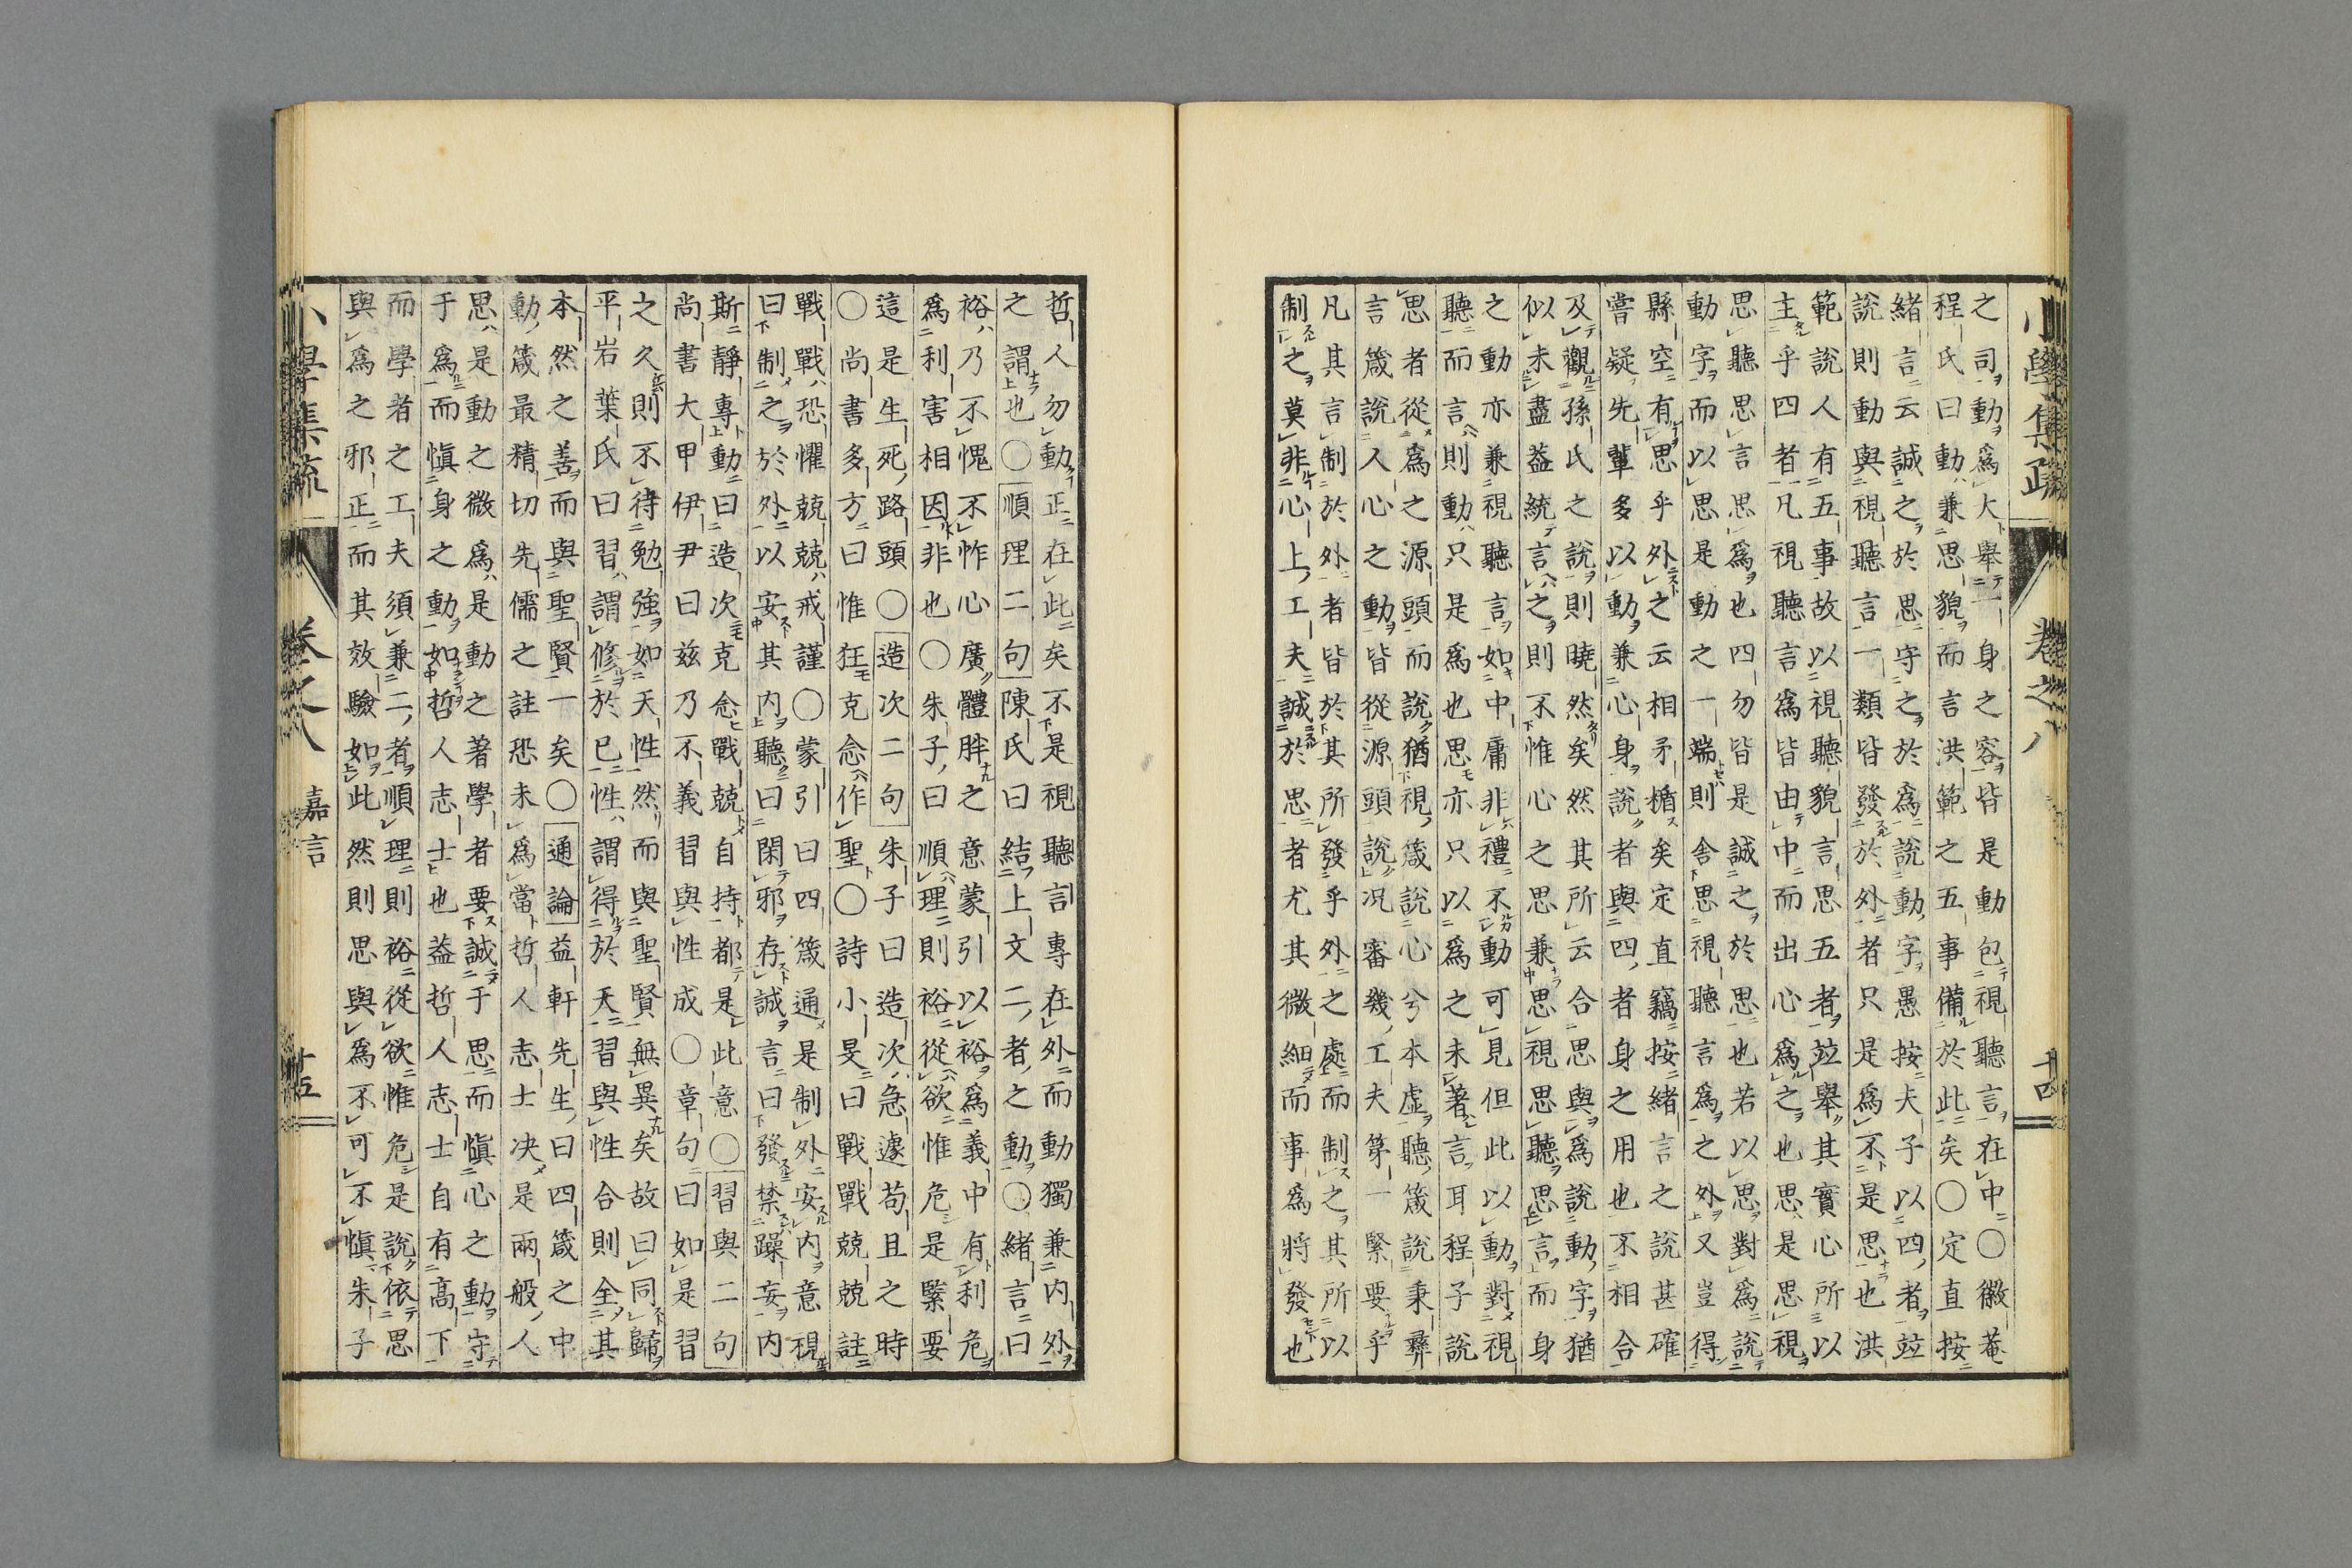 小學集疏 卷之八 十四
之司動爲大舉一身之容皆是動包視聽言在中〇微菴
程氏曰動兼思貌而言洪範之五事備於此矣〇定直按
緒言云誠之於思守之於爲說動字愚按夫子以四者竝
說則動與視聽言一類皆發於外者只是爲不是思也洪
範說人有五事故以視聽貌言思五者竝舉其實心所以
主乎四者凡視聽言爲皆由中而出心爲之也思是思視
思聽思言思爲也四勿皆是誠之於思也若以思對爲說
動字而以思是動之一端則舍思視聽言爲之外又豈得
縣空有思乎外之云相矛楯矣定直竊按緒言之說甚確
嘗疑先輩多以動兼心身說者與四者身之用也不相合
及觀孫氏之說則曉然矣然其所云合思與爲說動字猶
似未盡蓋統言之則不惟心之思兼思視思聽思言而身
之動亦兼視聽言如中庸非禮不動可見但此以動對視
聽而言則動只是爲也思亦只以爲之未著言耳程子說
思者從爲之源頭而說猶視箴說心兮本虛聽箴說秉彝
言箴說人心之動皆從源頭說况審幾工夫第一緊要乎
凡其言制於外者皆於其所發乎外之處而制之其所以
制之莫非心上工夫誠於思者尤其微細而事爲將發也
哲人勿動正在此矣不是視聽言專在外而動獨兼内外
之謂也〇順理二句陳氏曰結上文二者之動〇緒言曰
裕乃不愧不怍心廣體胖之意蒙引以裕爲義中有利危
爲利害相因非也〇朱子曰順理則裕從欲惟危是緊要
這是生死路頭〇造次二句朱子曰造次急遽苟且之時
〇尚書多方曰惟狂克念作聖〇詩小旻曰戰戰兢兢註
戰戰恐懼兢兢戒謹〇蒙引曰四箴通是制外安内意視
曰制之於外以安其内聽曰閑邪存誠言曰發禁躁妄内
斯靜專動曰造次克念戰兢自持都是此意〇習與二句
尚書大甲伊尹曰兹乃不義習與性成〇章句曰如是習
之久則不待勉強如天性然而與聖賢無異矣故曰同歸
平岩葉氏曰習謂修於已性謂得於天習與性合則全其
本然之善而與聖賢一矣〇通論益軒先生曰四箴之中
動箴最精切先儒之註恐未爲當哲人志士决是兩般人
思是動之微爲是動之著學者要誠于思而愼心之動守
于爲而愼身之動如哲人志士也蓋哲人志士自有高下
而學者之工夫須兼二者順理則裕從欲惟危是說依思
與爲之邪正而其效驗如此然則思與爲不可不愼朱子
小學集疏 卷之八 嘉言 十五